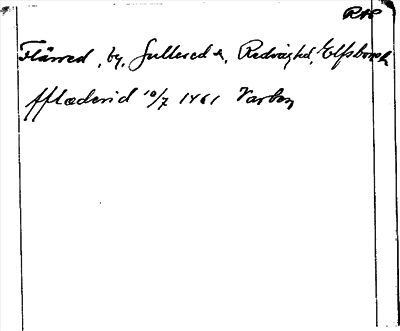 RAP
Flärred, by, Gullered sn, Redvägs hd, Elfsborgs l.
fflædærid 10/7 1461 Varberg